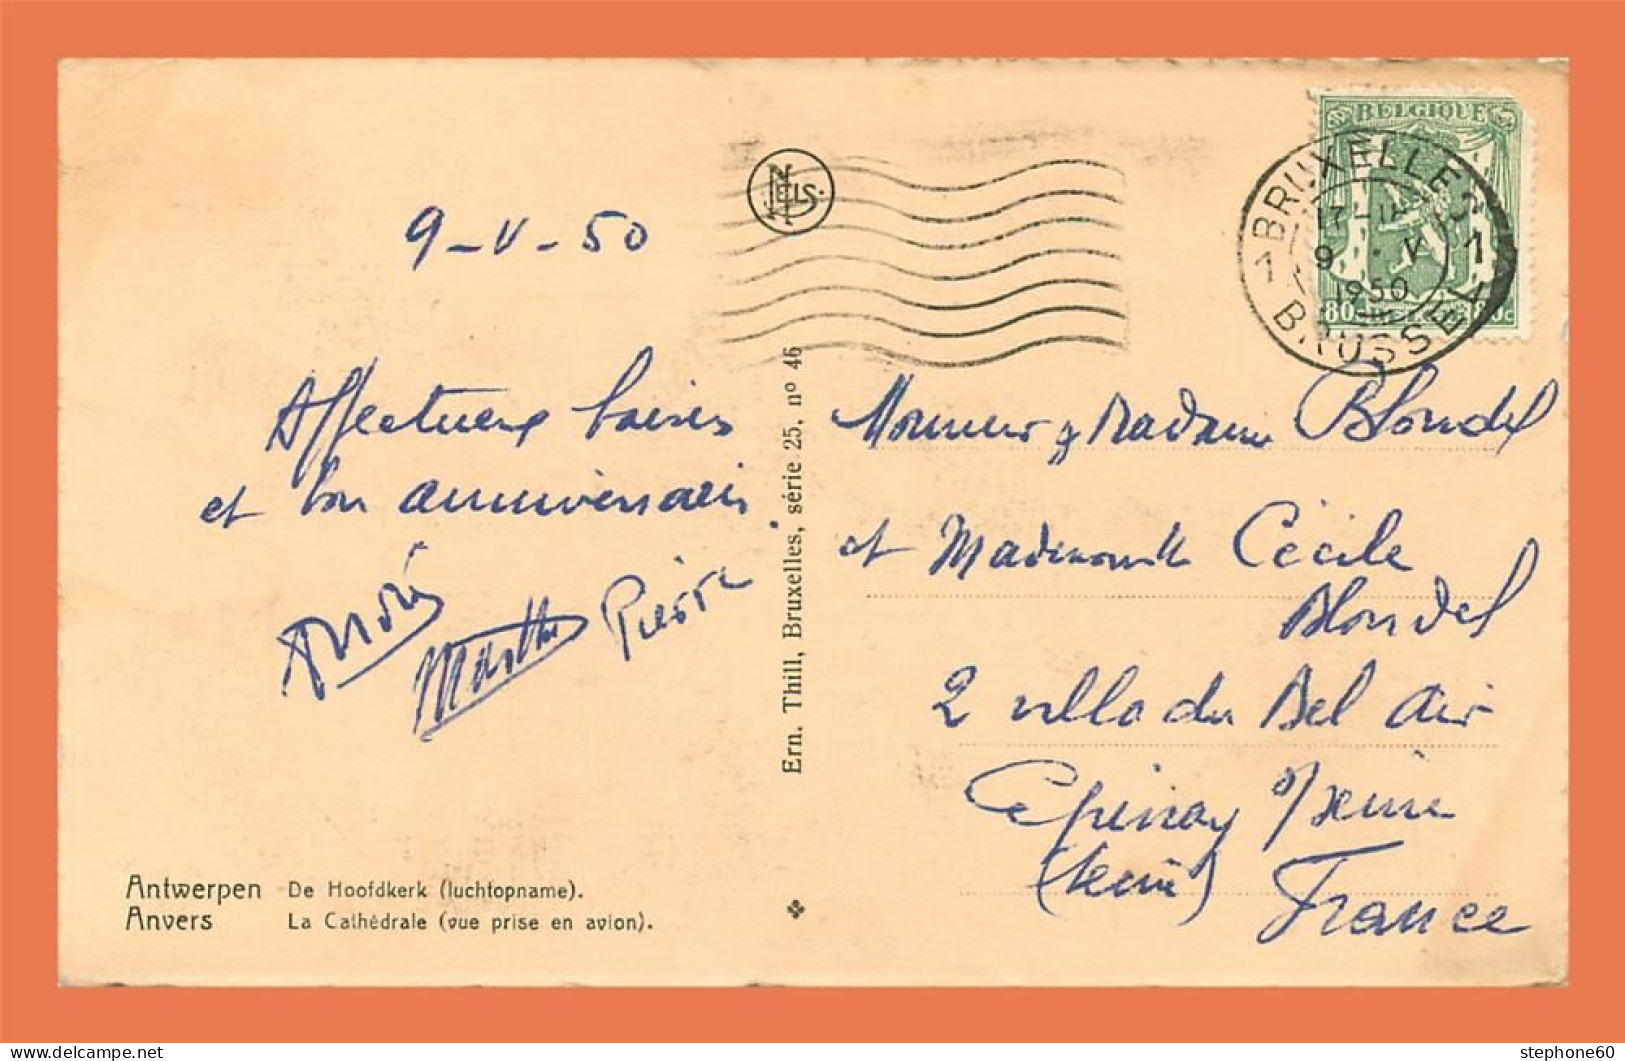 9-V-50
Affectueux baisers
et bon anniversaire
André
Marthe
Pierre
Antwerpen De Hoofdkerk (luchtopname).
Anvers La Cathédrale (vue prise en avion).
NELS.
Ern. Thill, Bruxelles, série 25, nº 46
BELGIQUE
80c 80c
BRUXELLES
1 1
9 · V
1950
BRUSSEL
Monsieur & Madame Blondel
et Mademoiselle Cécile
Blondel
2 villa du Bel Air
Epinay s/Seine
(Seine)
France
stephone60